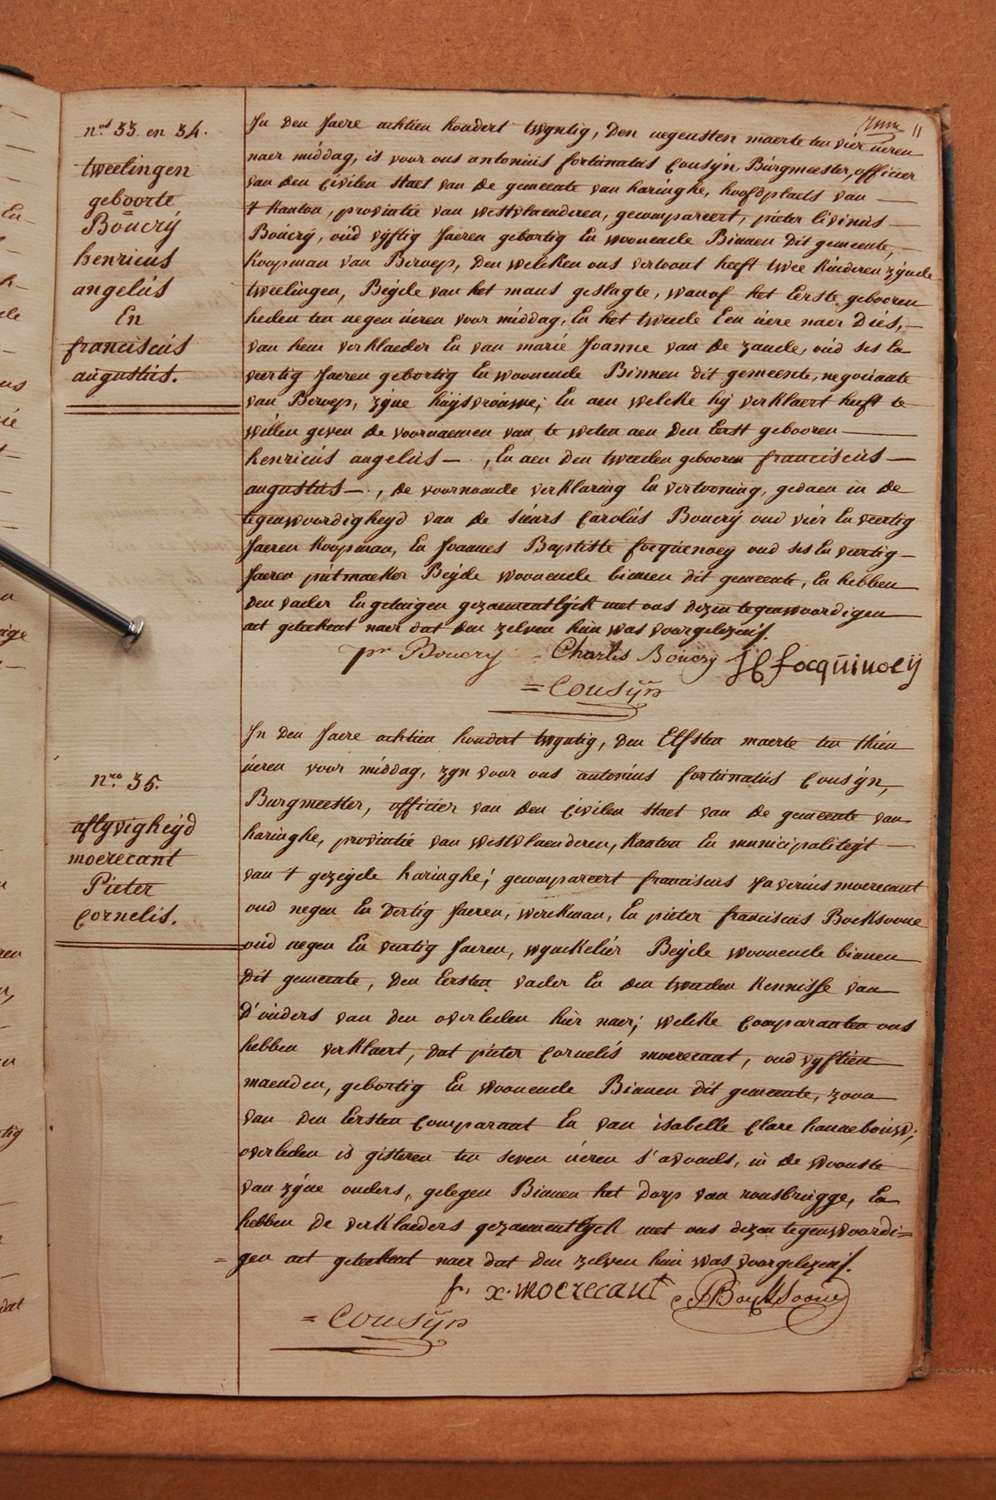 11
n.os 33 en 34.
tweelingen
geboorte
Boucrÿ
henricus
angelus
En
franciscus
augustus.
In den Jaere achtien hondert twyntig, den negensten maerte ten vier ueren
naer middag, is voor ons antonius fortunatus Cousÿn, Burgmeester, officier
van den Civilen staet van de gemeente van haringhe, hoofdplaets van
't Kanton, provintie van westvlaenderen, gecompareert, pieter livinus
Boucrÿ, oud vÿftig Jaeren gebortig En woonende Binnen dit gemeente,
Koopman van Beroep, den welcken ons vertoont heeft twee Kinderen zÿnde
tweelingen, Beÿde van het mans geslagte, wanof het Eerste gebooren
heden ten negen ueren voor middag, En het tweede Een uere naer dies,
van hem verklaeder En van marie Joanne van de zande, oud ses En
veertig Jaeren gebortig En woonende Binnen dit gemeente, negociante
van Beroep, zÿne huÿsvrouwe; En aen welcke hÿ verklaert heeft te
willen geven de voornaemen van te weten aen den Eerst gebooren
henricus angelus , En aen den tweeden gebooren franciscus
augustus , de voornoemde verklaring En vertooning, gedaen in de
tegenwoordigheyd van de sieurs Carolus Boucrÿ oud vier En veertig
Jaeren Koopman, En Joannes Baptiste focquenoey oud ses En veertig
Jaeren putmaeker Beÿde woonende binnen dit gemeente, En hebben
den vader En getuigen gezaementlÿck met ons dezen tegenwoordigen
act geteekent naer dat den zelven hun was voorgelezen.
pr Boucrÿ Charles Boucrÿ JB focquinoeÿ
= Cousÿn
n.ro 35.
aflyvigheÿd
moerecant
Pieter
Cornelis.
In den Jaere achtien hondert twyntig, den Elfsten maerte ten thien
ueren voor middag, zyn voor ons antonius fortunatus Cousÿn,
Burgmeester, officier van den Civilen staet van de gemeente van
haringhe, provintie van westvlaenderen, Kanton En municipaliteÿt
van 't gezeÿde haringhe; gecompareert franciscus xaverius moerecant
oud negen En dertig Jaeren, werckman, En pieter franciscus Bocksoone
oud negen En veertig Jaeren, wynckelier Beÿde woonende binnen
dit gemeente, den Eersten vader En den tweeden Kennisse van
d'ouders van den overleden hier naer; welcke Comparanten ons
hebben verklaert, dat pieter Cornelis moerecant, oud vyftien
maenden, gebortig En woonende Binnen dit gemeente, zoon
van den Eersten Comparant En van isabelle Clare hannebouw;
overleden is gisteren ten seven ueren s'avonds, in de woonste
van zÿne ouders, gelegen Binnen het dorp van rousbrugge, En
hebben de verklaeders gezaementlÿck met ons dezen tegenwoordi=
= gen act geteekent naer dat den zelven hun was voorgelezen.
f. x. moerecant PBockSoone
= Cousÿn